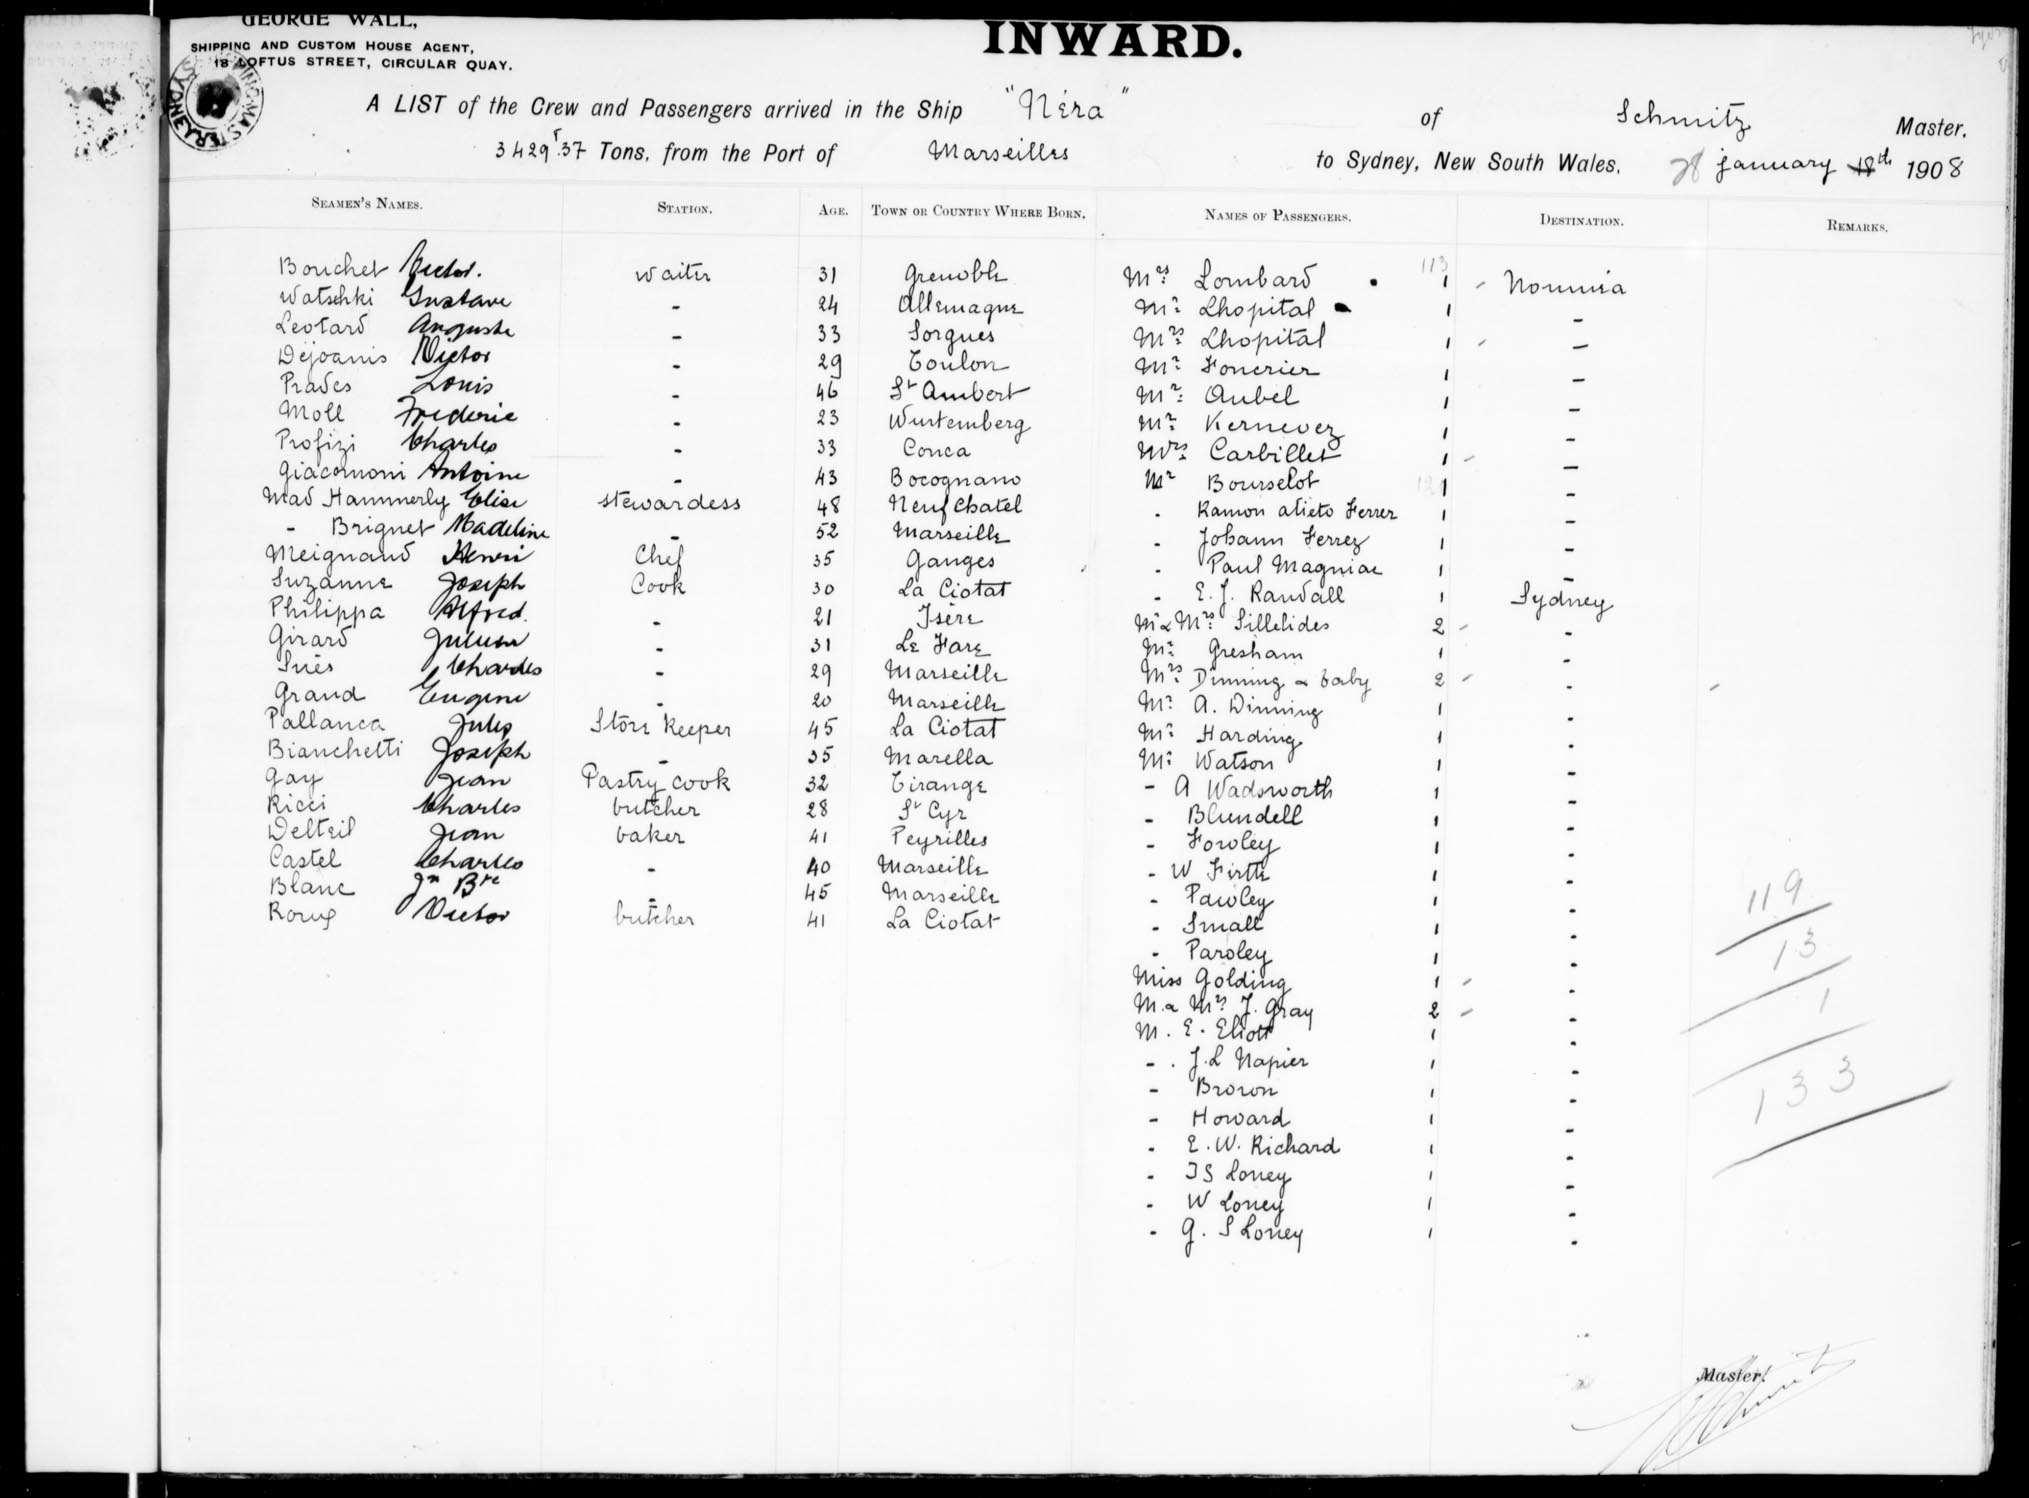 GEORGE WALL,
SHIPPING AND CUSTOM HOUSE AGENT,
18 LOFTUS STREET, CIRCULAR QUAY.
INWARD.
A LIST of the Crew and Passengers arrived in the Ship "Néra" of Schmitz Master,
3429T.37 Tons, from the Port of Marseilles to Sydney, New South Wales, January 18th 1908
SEAMEN'S NAMES. STATION. AGE. TOWN OR COUNTRY WHERE BORN. NAMES OF PASSENGERS. DESTINATION. REMARKS.
113
Bouchet Victor. waiter 31 Grenoble
Watschki Gustave - 24 Allemagne
Leotard Auguste - 33 Sorgues
Dejoanis Victor - 29 Toulon
Prades Louis - 46 St Ambert
Moll Frederic - 23 Wurtemberg
Profizi Charles - 33 Conca
Giacomoni Antoine - 43 Bocognano
Mad Hammerly Elise stewardess 48 Neufchatel
- Brignet Madeline - 52 Marseille
Meignaud Henri Chef 35 Ganges
Suzanne Joseph Cook 30 La Ciotat
Philippa Alfred. - 21 Isère
Girard Julien - 31 Le Fare
Suès Charles - 29 Marseille
Grand Eugene - 20 Marseille
Pallanca Jules Store Keeper 45 La Ciotat
Bianchetti Joseph - 35 Marella
Gay Jean Pastry cook 32 Tirange
Ricci Charles butcher 28 St Cyr
Delteil Jean baker 41 Peyrilles
Castel Charles - 40 Marseille
Blanc Jn Bte - 45 Marseille
Roux Victor butcher 41 La Ciotat
Mrs Lombard 1 Noumea
Mr Lhopital 1 -
Mrs Lhopital 1 -
Mr Fourier 1 -
Mr Aubel 1 -
Mr Kernevez 1 -
Mrs Carbillet 1 -
Mr Bourselot 1 -
- Ramon atieto Ferrer 1 -
- Johann Ferrez 1 -
- Paul Magniac 1 -
- E. J. Randall 1 Sydney
Mr & Mrs Sillelides 2 -
Mr Gresham 1 -
Mrs Dinning & baby 2 -
Mr A. Dinning 1 -
Mr Harding 1 -
Mr Watson 1 -
- A Wadsworth 1 -
- Blundell 1 -
- Fowley 1 -
- W Firth 1 -
- Pawley 1 -
- Small 1 -
- Parsley 1 -
Miss Golding 1 -
M. & Mrs J. Gray 2 -
M. E. Eliott 1 -
- J. L Napier 1 -
- Brown 1 -
- Howard 1 -
- E. W. Richard 1 -
- J S Loney 1 -
- W Loney 1 -
- G. S Loney 1 -
119
13
1
133
Master.